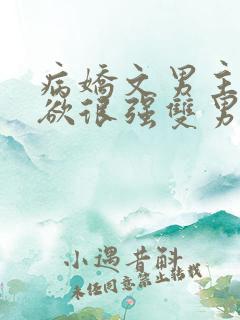 病嬌文男主
欲很强雙男
小遇昔斛
未经同意禁止转载